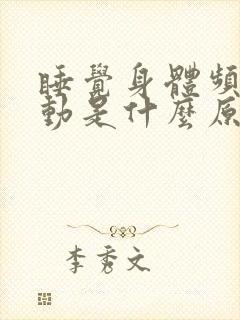 睡覺身體頻
動是什麼原
李秀文